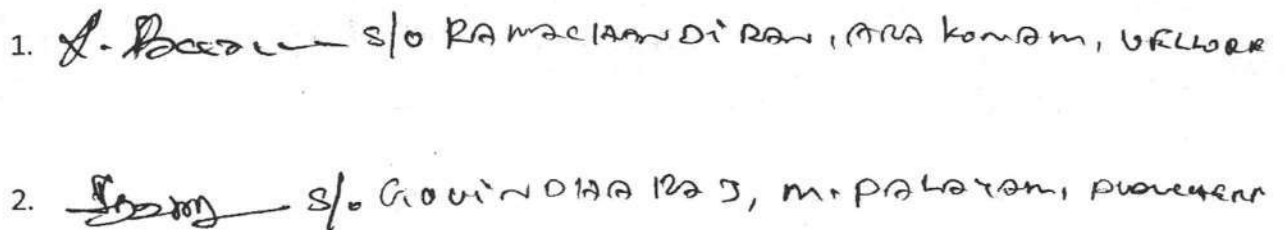 1. s/o RAMACHANDIRAN, ARAKONAM, VELLORE
2. s/o GOVINDHARAJ, M. PALAYAM,